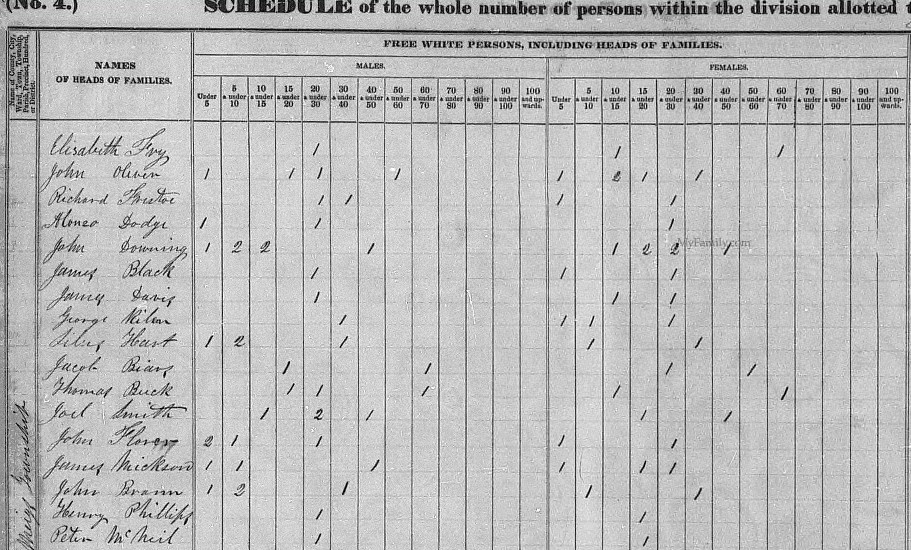 (No. 4.) SCHEDULE of the whole number of persons within the division allotted t
Name of County, City, Ward, Town, Township, Parish, Precinct, Hundred, or District.
NAMES OF HEADS OF FAMILIES.
FREE WHITE PERSONS, INCLUDING HEADS OF FAMILIES.
MALES. FEMALES.
Under 5 5 & under 10 10 & under 15 15 & under 20 20 & under 30 30 & under 40 40 & under 50 50 & under 60 60 & under 70 70 & under 80 80 & under 90 90 & under 100 100 and upwards. Under 5 5 & under 10 10 & under 15 15 & under 20 20 & under 30 30 & under 40 40 & under 50 50 & under 60 60 & under 70 70 & under 80 80 & under 90 90 & under 100 100 and upwards.
Elisabeth Fry 1 1 1
John Oliver 1 1 1 1 1 2 1 1
Richard 1 1 1 1
Alonso Dodge 1 1 1
John Downing 1 2 2 1 1 2 2 1
MyFamily.com
James Black 1 1 1
James Davis 1 1 1
George 1 1 1 1
Hart 1 2 1 1 1
Jacob 1 1 1 1
Thomas Buck 1 1 1 1 1
Joel Smith 1 2 1 1 1
John 2 1 1 1 1
James 1 1 1 1 1 1
John 1 2 1 1 1
Henry Phillips 1 1
Peter McNeil 1 1
Township